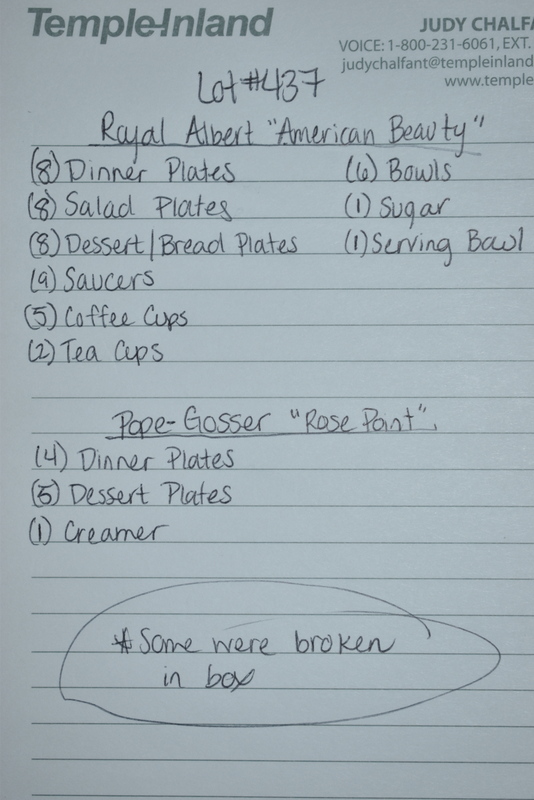 Temple-Inland
JUDY CHALFA
VOICE: 1-800-231-6061, EXT.
judychalfant@templeinland
www.temple
Lot #437
Royal Albert "American Beauty"
(8) Dinner Plates
(8) Salad Plates
(8) Dessert/Bread Plates
(9) Saucers
(5) Coffee Cups
(2) Tea Cups
(6) Bowls
(1) Sugar
(1) Serving Bowl
Pope-Gosser "Rose Point"
(4) Dinner Plates
(5) Dessert Plates
(1) Creamer
* Some were broken
in box